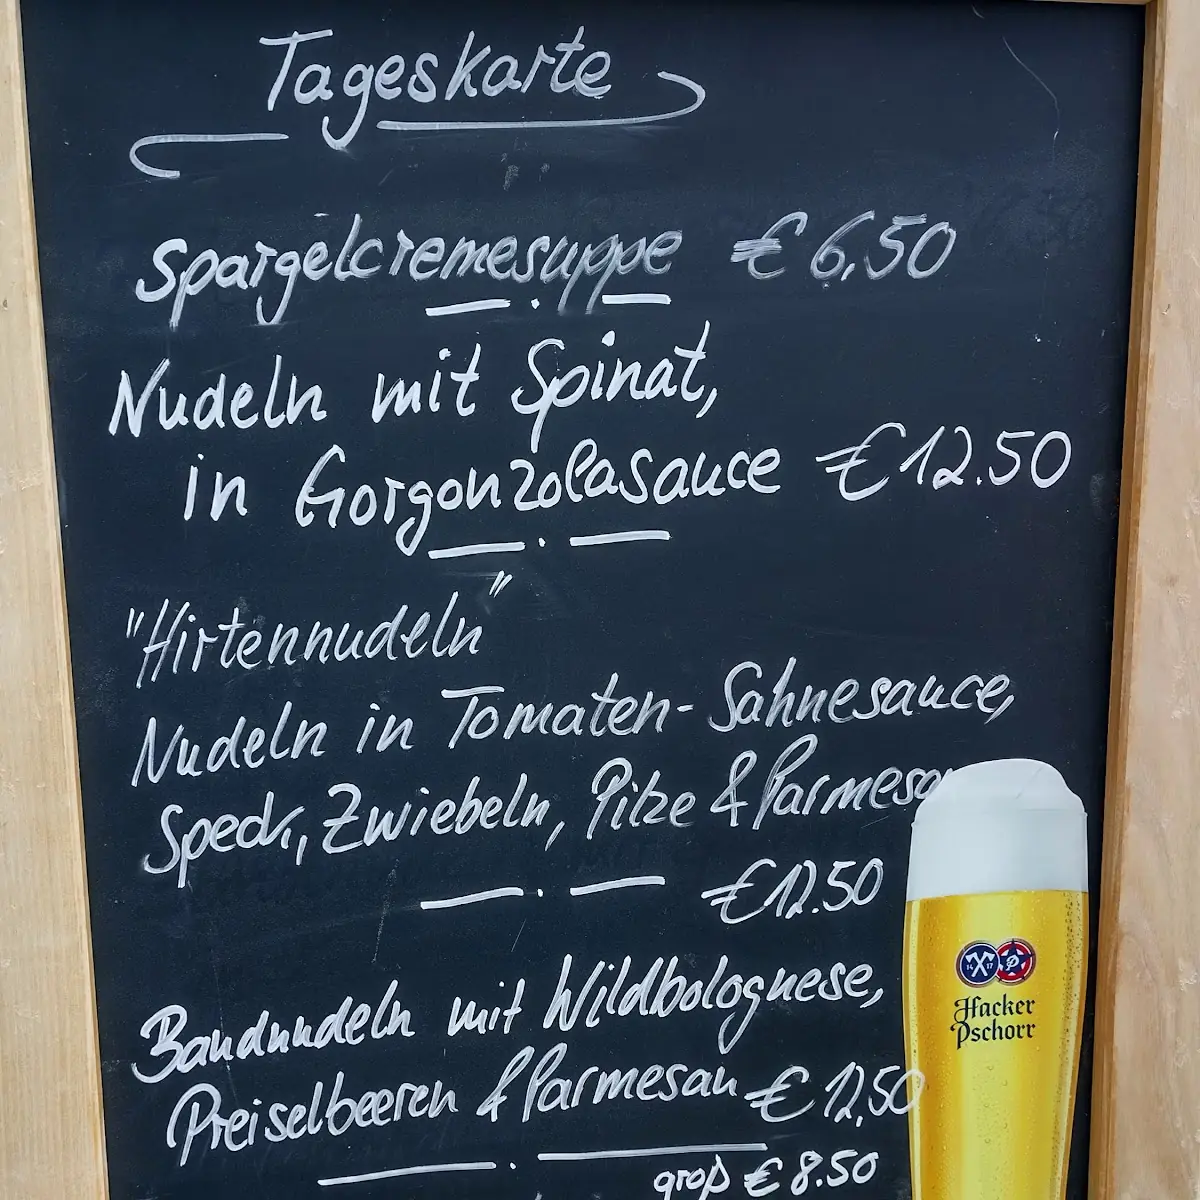 Tageskarte
Spargelcremesuppe € 6,50
Nudeln mit Spinat,
in Gorgonzolasauce €12.50
"Hirtennudeln"
Nudeln in Tomaten-Sahnesauce,
Speck, Zwiebeln, Pilze & Parmesan
€12.50
Bandnudeln mit Wildbolognese,
Preiselbeeren & Parmesan € 12,50
groß € 8.50
14 17 P
Hacker
Pschorr